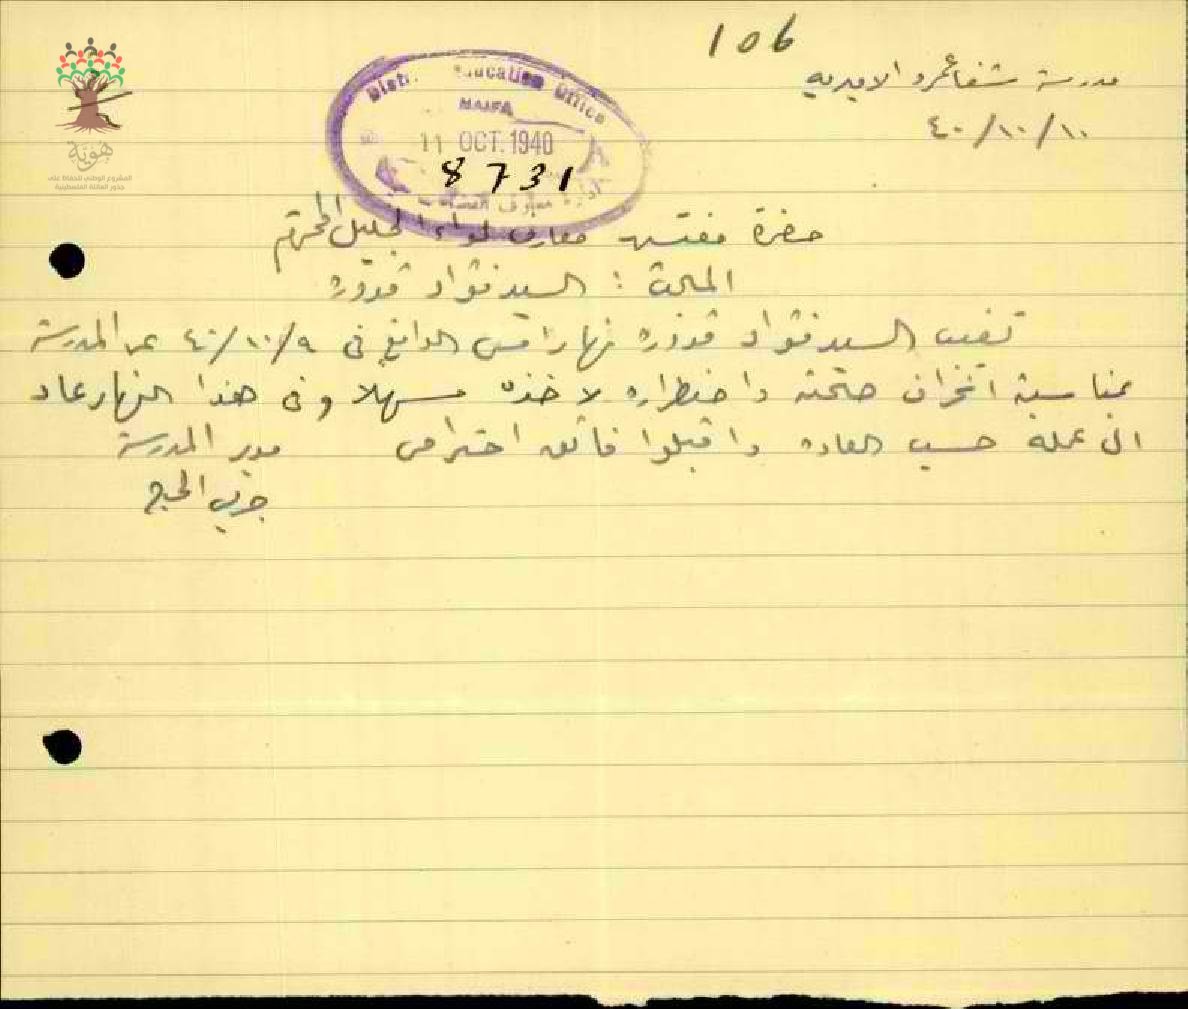 106
مدرسة شفاعمرو الاميرية
٤٠/١٠/١٠
District Education Office
HAIFA
11 OCT. 1940
8731
حضرة مفتش معارف لواء الجليل المحترم
المبحث : السيد فؤاد قدوره
تغيب السيد فؤاد قدوره نهار امس الواقع في ٤٠/١٠/٩ عن المدرسة
بمناسبة انحراف صحته واضطراره لاخذه مسهلا وفي هذا النهار عاد
الى عمله حسب العاده واقبلوا فائق احترامي مدير المدرسة
هوية
المشروع الوطني للحفاظ على
جذور العائلة الفلسطينية